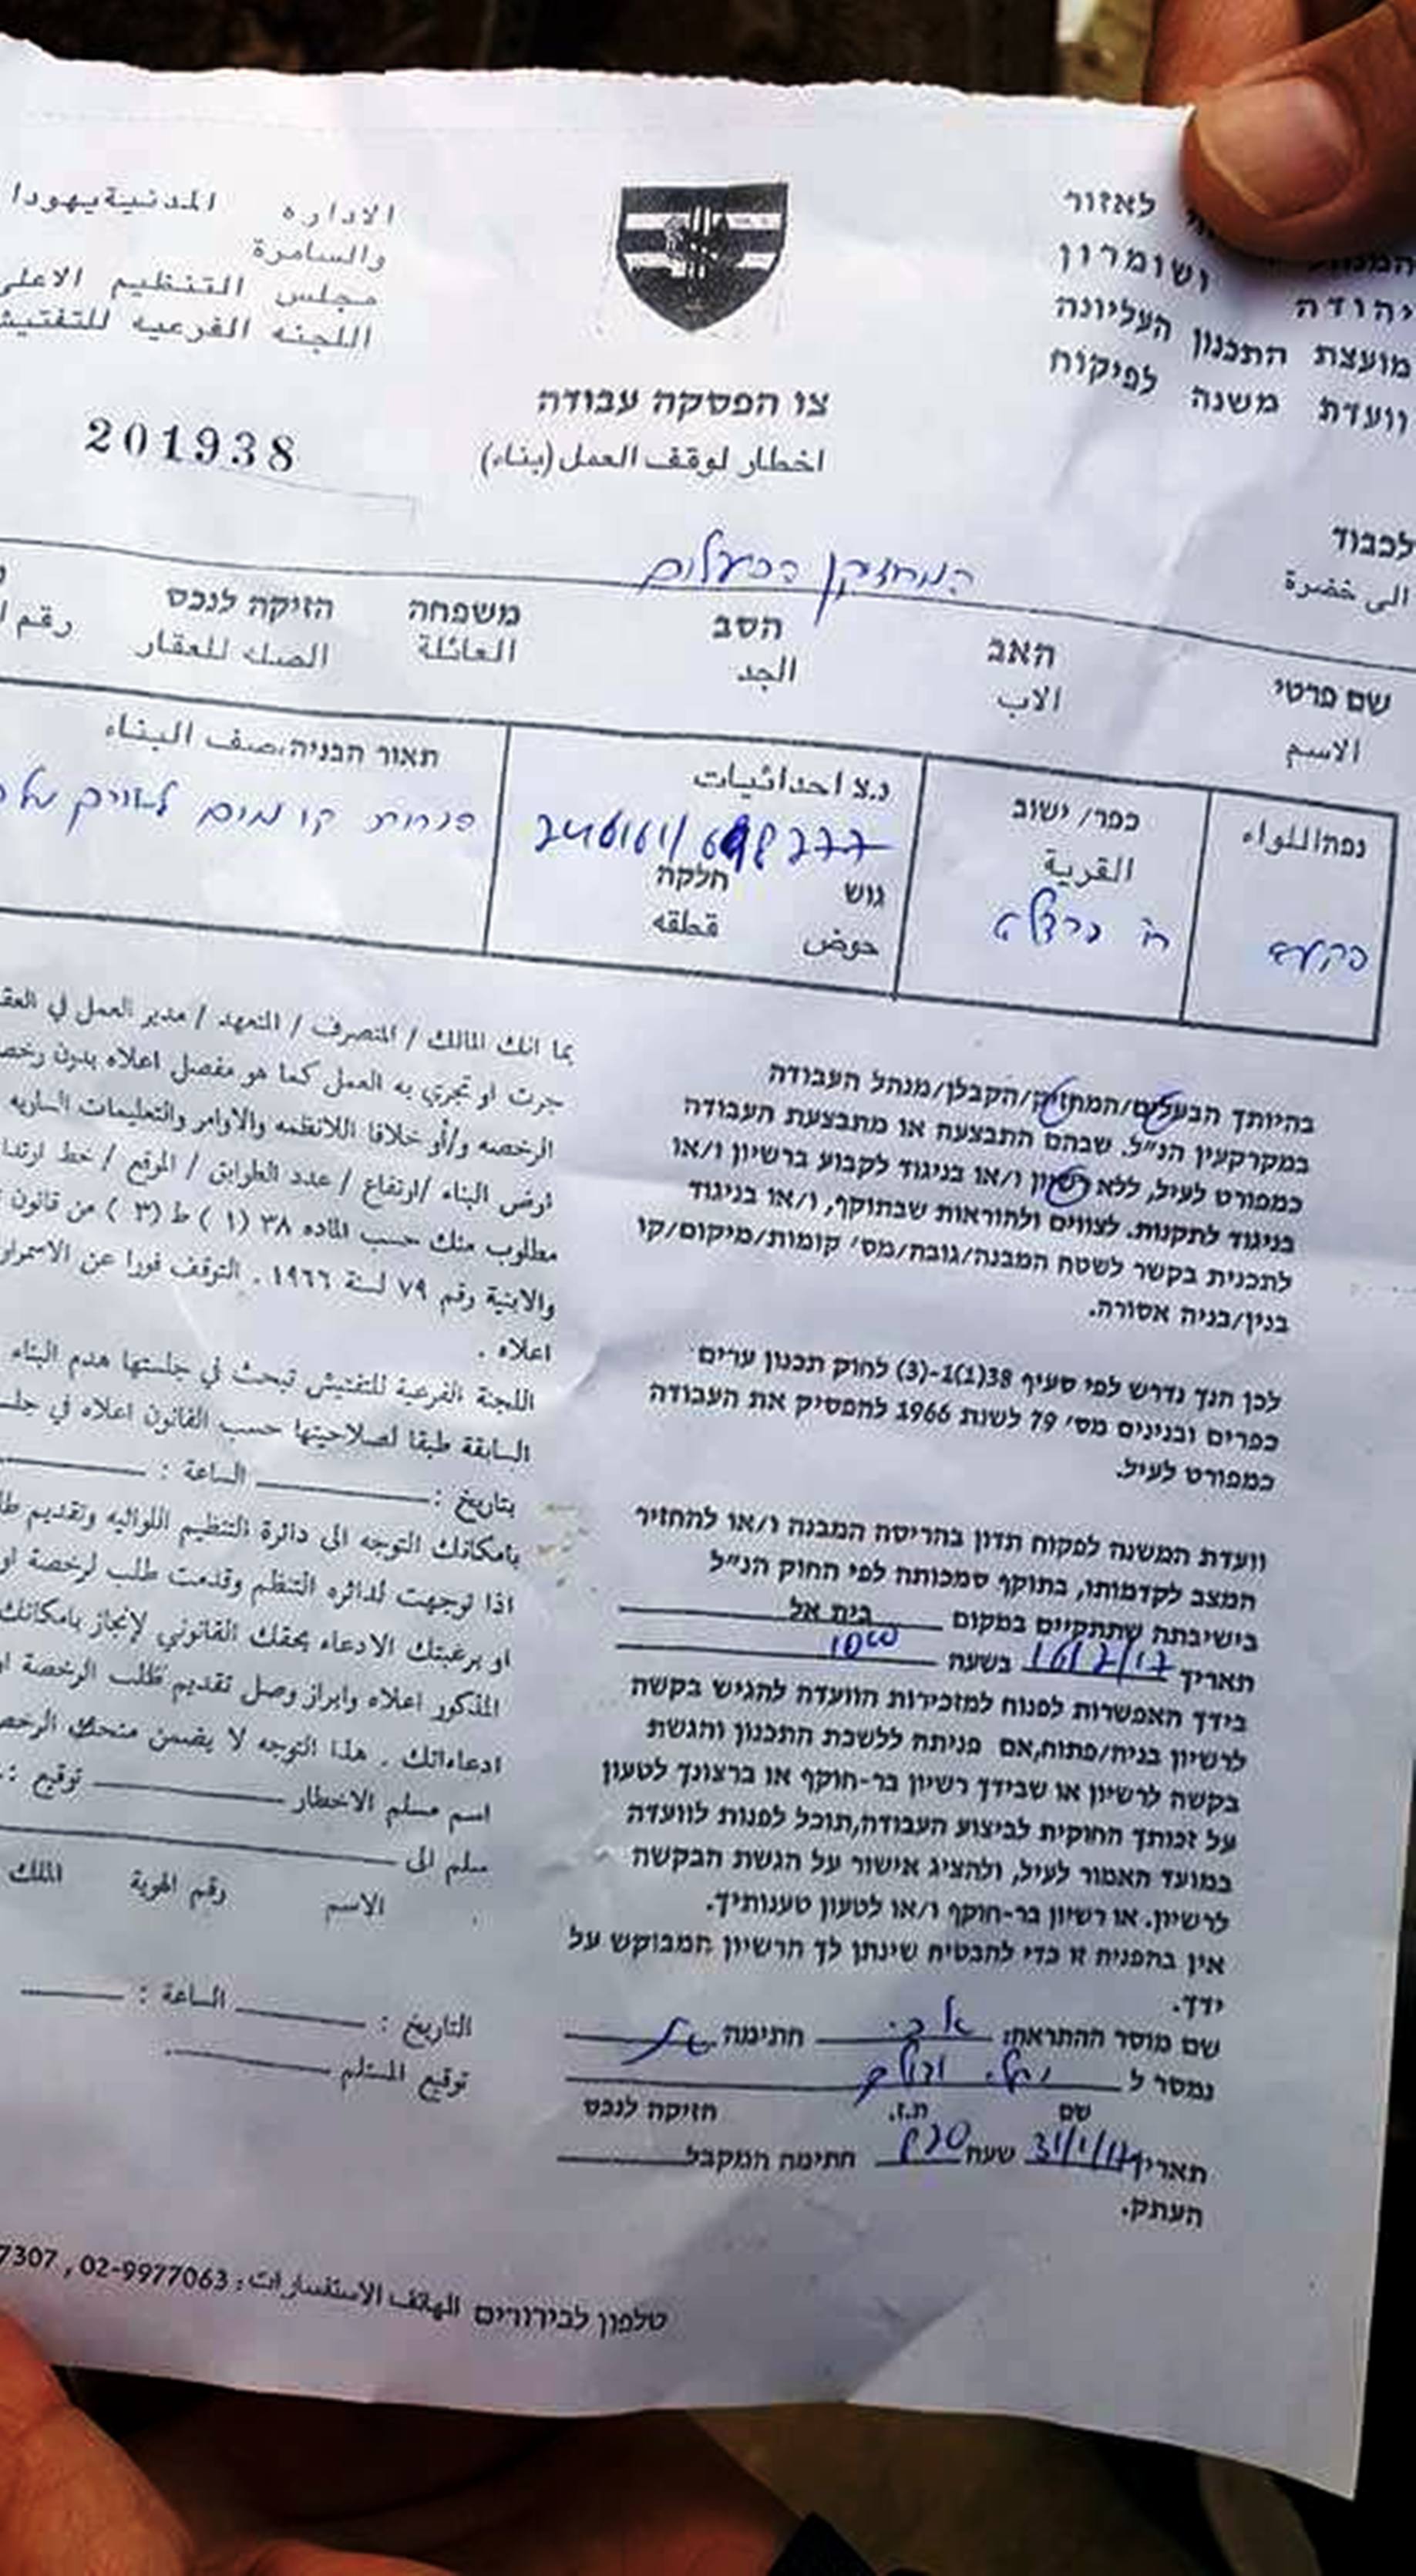 לאזור
יהודה ושומרון
מועצת התכנון העליונה
וועדת משנה לפיקוח
الاداره المدنية يهودا
والسامرة
مجلس التنظيم الاعلى
اللجنه الفرعيه للتفتيش
201938
צו הפסקה עבודה
اخطار لوقف العمل (بناء)
לכבוד
الى حضرة
המחזיק / הבעלים
שם פרטי האב הסב משפחה הזיקה לנכס
الاسم الاب الجد العائلة الصك للعقار رقم
נפה/اللواء
בקעה
כפר/ ישוב
القرية
נ.צ احداثيات
246161/698777
גוש חלקה
حوض قطقه
תאור הבניה/صف البناء
הנחת קו מים לאורך
בהיותך הבעלים/המחזיק/הקבלן/מנהל העבודה
במקרקעין הנ״ל. שבהם התבצעה או מתבצעת העבודה
כמפורט לעיל, ללא רשיון ו/או בניגוד לקבוע ברשיון ו/או
בניגוד לתקנות. לצווים ולהוראות שבתוקף, ו/או בניגוד
לתכנית בקשר לשטח המבנה/גובה/מס׳ קומות/מיקום/קו
בנין/בניה אסורה.
לכן הנך נדרש לפי סעיף 38(1)1-(3) לחוק תכנון ערים
כפרים ובנינים מס׳ 79 לשנת 1966 להפסיק את העבודה
כמפורט לעיל.
וועדת המשנה לפקוח תדון בהריסה המבנה ו/או להחזיר
המצב לקדמותו, בתוקף סמכותה לפי החוק הנ״ל
בישיבתה שתתקיים במקום בית אל
תאריך 16/2/17 בשעה 10 00
בידך האפשרות לפנות למזכירות הוועדה להגיש בקשה
לרשיון בניה/פתוח,אם פניתה ללשכת התכנון והגשת
בקשה לרשיון או שבידך רשיון בר-תוקף או ברצונך לטעון
על זכותך החוקית לביצוע העבודה,תוכל לפנות לוועדה
במועד האמור לעיל, ולהציג אישור על הגשת הבקשה
לרשיון. או רשיון בר-תוקף ו/או לטעון טענותיך.
אין בהפניה זו כדי להבטיח שינתן לך הרשיון המבוקש על
ידך.
שם מוסר ההתראה: חתימה
נמסר ל
שם ת.ז. הזיקה לנכס
תאריך 31/1/17 שעה חתימה המקבל
העתק.
بما انك المالك / المتصرف / المتعهد / مدير العمل في
جرت او تجري به العمل كما هو مفصل اعلاه بدون
الرخصه و/أو خلافا اللانظمه والاوامر والتعليمات الساريه
ارض البناء /ارتفاع / عدد الطوابق / الموقع / خط
مطلوب منك حسب الماده ٣٨ (١) ط (٣) من قانون
والابنية رقم ٧٩ لسنة ١٩٦٦ . التوقف فورا عن
اعلاه .
اللجنة الفرعية للتفتيش تبحث في جلستها هدم البناء
السابقة طبقا لصلاحيتها حسب القانون اعلاه في
بتاريخ : الساعة :
بامكانك التوجه الى دائرة التنظيم اللوائيه وتقديم
اذا توجهت لدائره التنظم وقدمت طلب لرخصة او
او برغبتك الادعاء بحقك القانوني لإنجاز بامكانك
المذكور اعلاه وابراز وصل تقديم طلب الرخصة
ادعاءاتك . هذا التوجه لا يضمن منحك
اسم مسلم الاخطار توقيع :
سلم الى
الاسم رقم الهوية الملك
التاريخ : الساعة :
توقيع المستلم
טלפון לבירורים الهاتف الاستفسارات : 02-9977063 , 7307